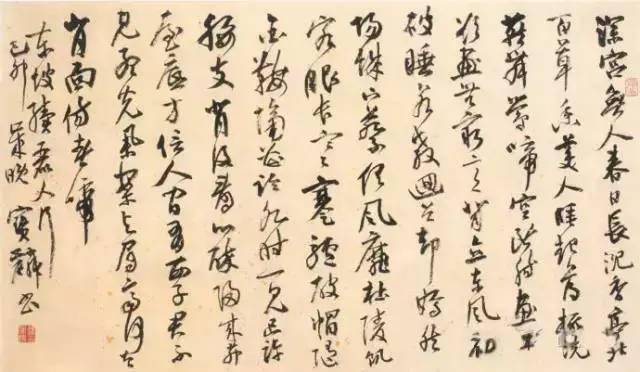 深宮無人春日長沉香亭北
百花香美人睡起薄梳洗
燕舞鶯啼空斷腸畫工
欲畫無窮意背立東風初
破睡若教迴首却嫣然
陽城下蔡俱風靡杜陵飢
客眼長寒蹇驢破帽隨
金鞍隔花臨水時一見只許
腰支背後看心醉歸來茅
屋底方信人間有西子君不
見孟光舉案與眉齊何曾
背面傷春啼
東坡續麗人行
己卯歲晚 寶麟書